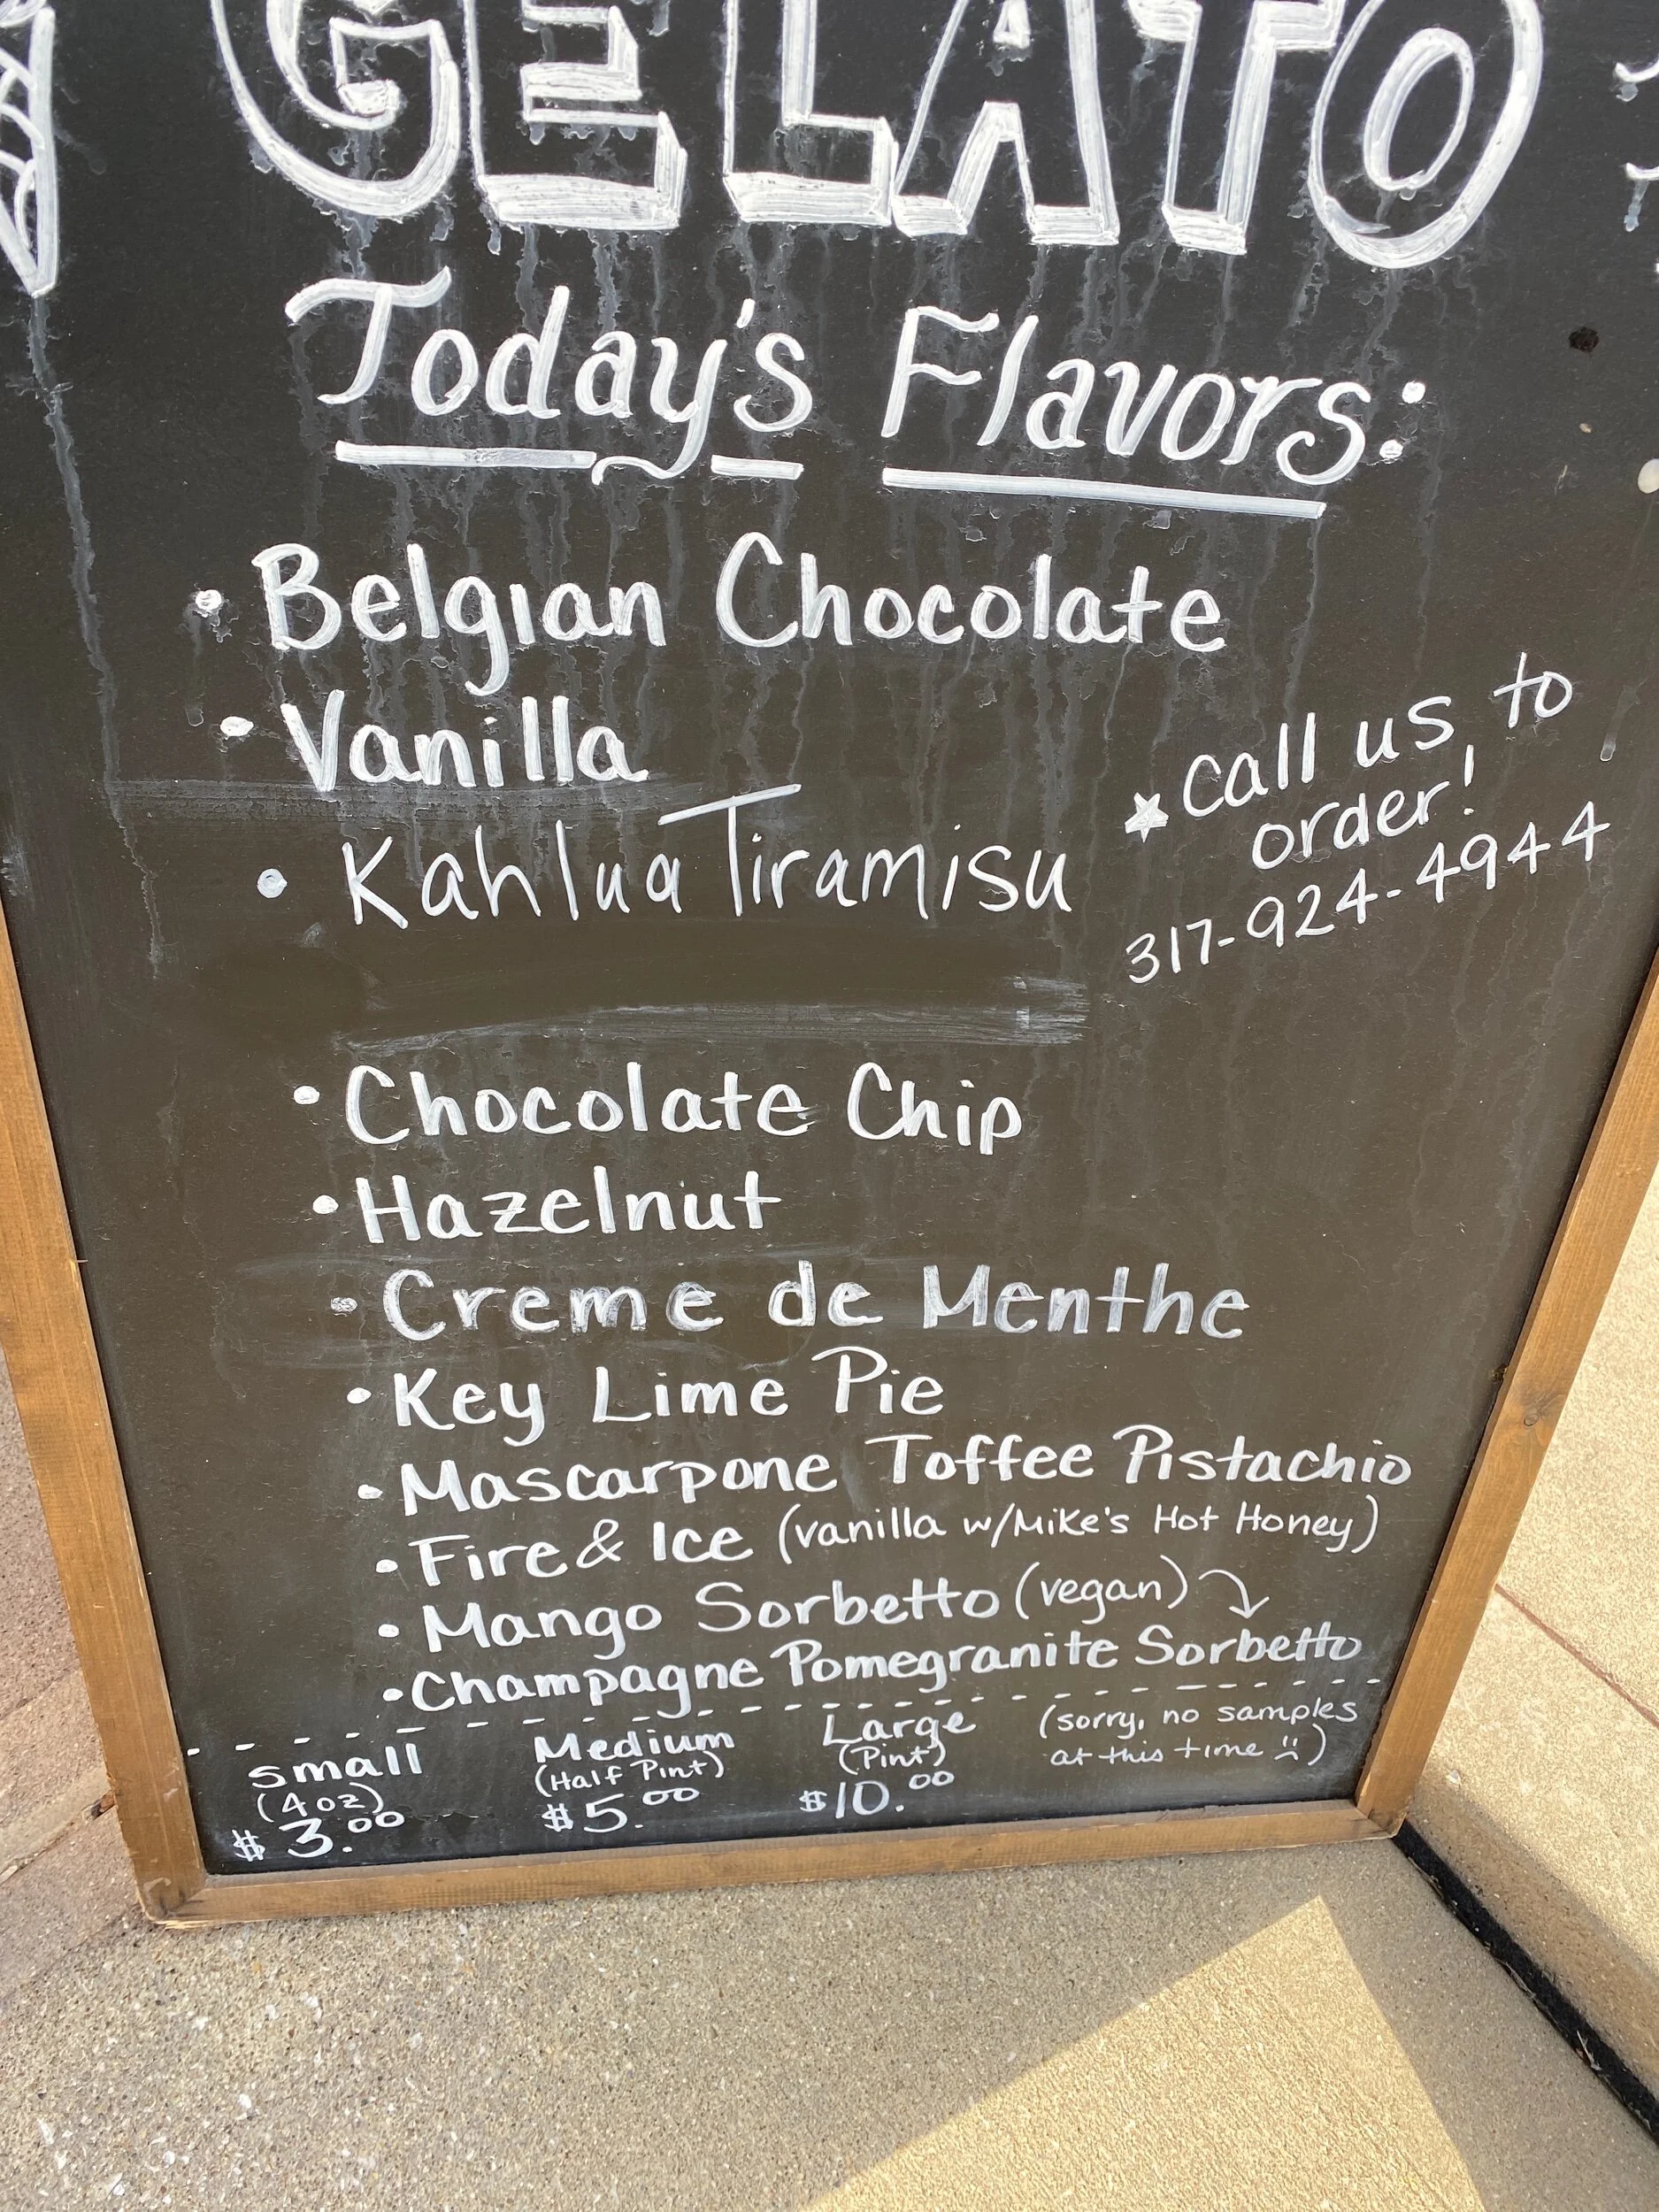 GELATO
Today's Flavors:
• Belgian Chocolate
• Vanilla
• Kahlua Tiramisu
★ call us to
order!
317-924-4944
• Chocolate Chip
• Hazelnut
• Creme de Menthe
• Key Lime Pie
• Mascarpone Toffee Pistachio
• Fire & Ice (vanilla w/Mike's Hot Honey)
• Mango Sorbetto (vegan)
• Champagne Pomegranite Sorbetto
small
(4oz)
$3.00
Medium
(Half Pint)
$5.00
Large
(Pint)
$10.00
(sorry, no samples
at this time ☹)